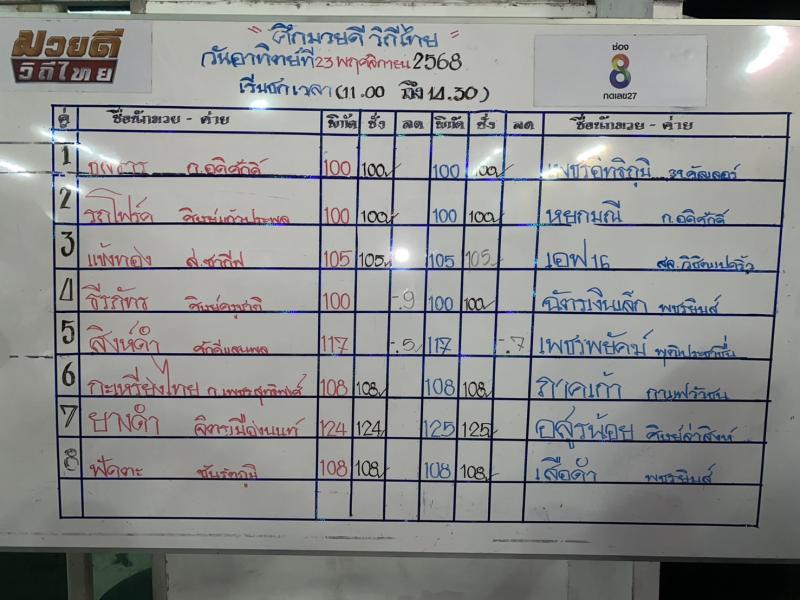 มวยดี
วิถีไทย
"ศึกมวยดี วิถีไทย"
วันอาทิตย์ที่ 23 พฤศจิกายน 2568
เริ่มชกเวลา (11.00 ถึง 14.30)
ช่อง
8
กดเลข27
คู่ ชื่อนักมวย - ค่าย พิกัด ชั่ง ลด พิกัด ชั่ง ลด ชื่อนักมวย - ค่าย
1 ก.อดิศักดิ์ 100 100 100 100
2 รถโฟร์ค ศิษย์แก้วประพล 100 100 100 100 หยกมณี ก.อดิศักดิ์
3 แท่งทอง ส.ซารีฟ 105 105 105 105 เอฟ 16
4 ธีรภัทร ศิษย์ครูชาติ 100 -.9 100 100 ฉัตรเงินเล็ก พชรยิมส์
5 สิงห์ดำ ศักดิ์แสนพล 117 -.5 117 -.7 เพชรพยัคฆ์ พุฒิประชาชื่น
6 กะเหรี่ยงไทย 108 108 108 108 ภาคเก้า
7 ยางดำ จิตรเมืองนนท์ 124 124 125 125 อสูรน้อย ศิษย์ล่าสิงห์
8 108 108 108 108 เสือดำ พชรยิมส์